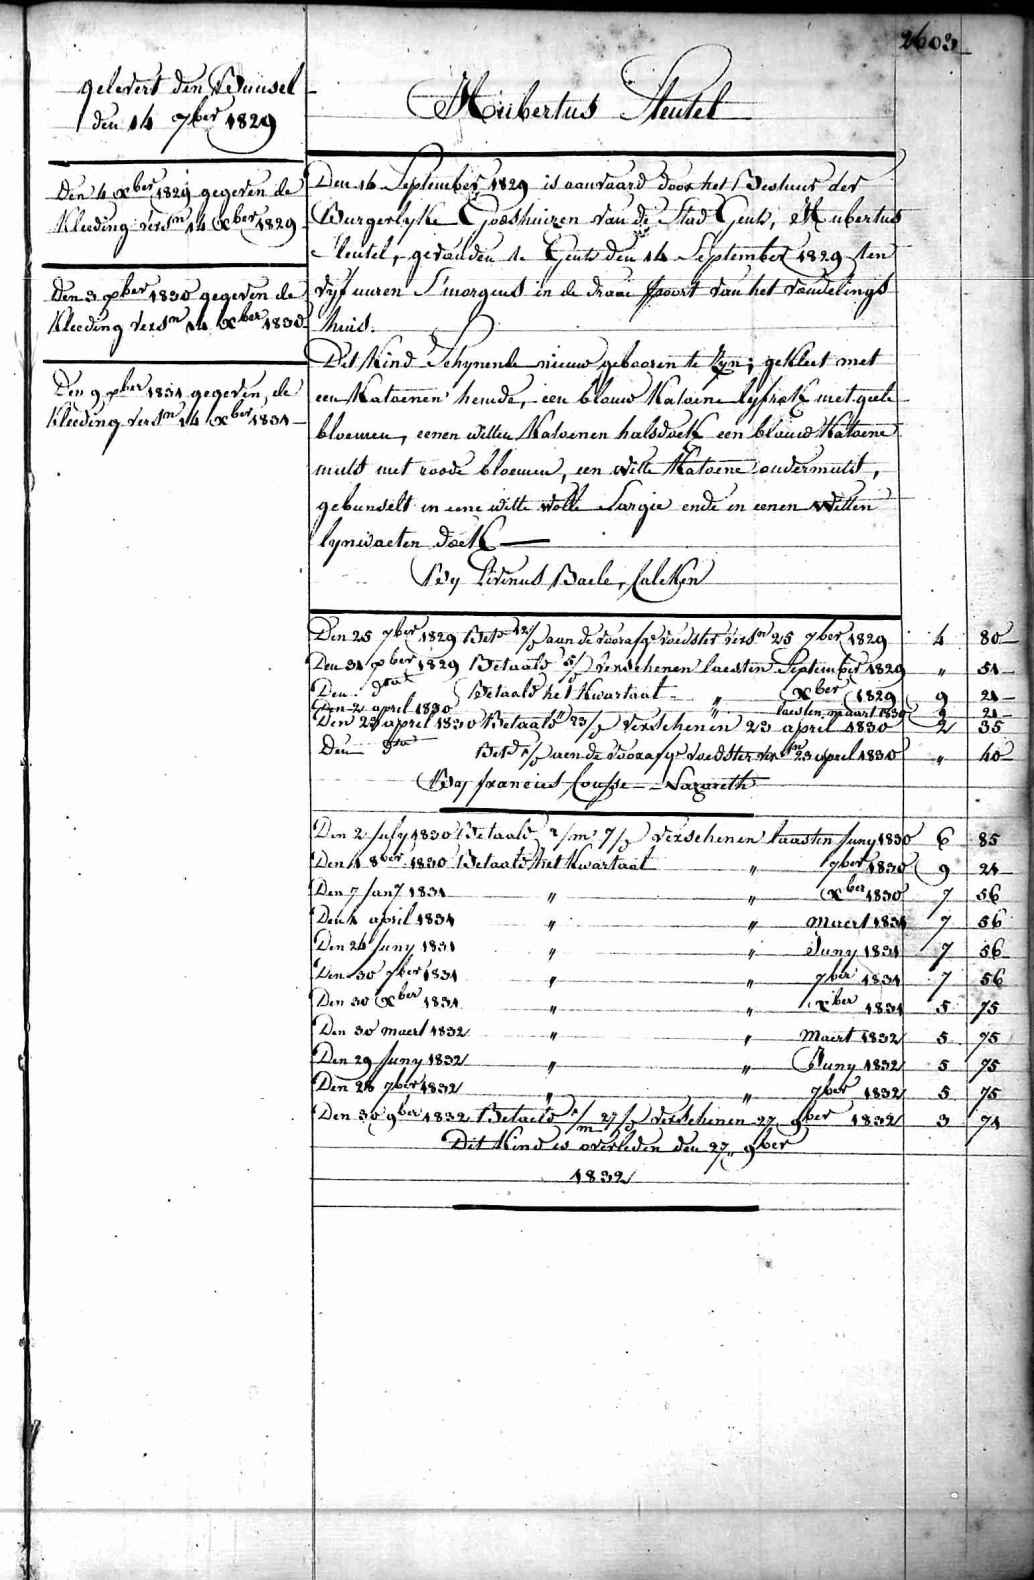 2603
gelevert den Bunsel
den 14 7ber 1829
Den 4 xber 1829 gegeven de
Kleeding versn 14 xber 1829
Den 3 9ber 1830 gegeven de
Kleeding versn 14 xber 1830
Den 9 9ber 1831 gegeven de
Kleeding versn 14 xber 1831
Hubertus Sleutel
Den 16 September 1829 is aanvaard door het Bestuur der
Burgerlyke Godshuizen van de Stad Gent, Hubertus
Sleutel, gevonden te Gent den 14 September 1829 ten
vyf uuren S'morgens in de draai poort van het vondelings
huis.
Dit Kind Schynende nieuw gebooren te Zyn; gekleet met
een Katoenen hemde, een blauw Katoene lyfrok met geele
bloemen, eenen witten Katoenen halsdoek een blauw Katoene
muts met roode bloemen, een witte Katoene ondermuts,
gebunselt in eene witte wolle Sargie ende in eenen witten
lynwaeten doek
By Livinus Baele, Calcken
Den 25 7ber 1829 Betd 12/ aan de voorafge voedster versn 25 7ber 1829 4 80
Den 31 xber 1829 Betaald 5/ verschenen laesten September 1829 " 51
Den dto Betaald het Kwartaal " xber 1829 9 21
Den 2 april 1830 " laesten maart 1830 9 21
Den 23 april 1830 Betaald 23/ verschenen 23 april 1830 2 35
Den dto Betd aen de voorafge voedster versn 23 april 1830 " 40
By francies Cousse - Nazareth
Den 2 July 1830 Betaald 2/m 7/ verschenen laasten Juny 1830 6 85
Den 1 8ber 1830 Betaald het Kwartaal " 7ber 1830 9 21
Den 7 Jany 1831 " " xber 1830 7 56
Den 1 april 1831 " " Maert 1831 7 56
Den 26 Juny 1831 " " Juny 1831 7 56
Den 30 7ber 1831 " 7ber 1831 7 56
Den 30 xber 1831 " " xber 1831 5 75
Den 30 maert 1832 " " Maert 1832 5 75
Den 29 Juny 1832 " " Juny 1832 5 75
Den 28 7ber 1832 " " 7ber 1832 5 75
Den 30 9ber 1832 Betaald 1/m 27/ verschenen 27 9ber 1832 3 71
Dit Kind is overleden den 27 9ber
1832